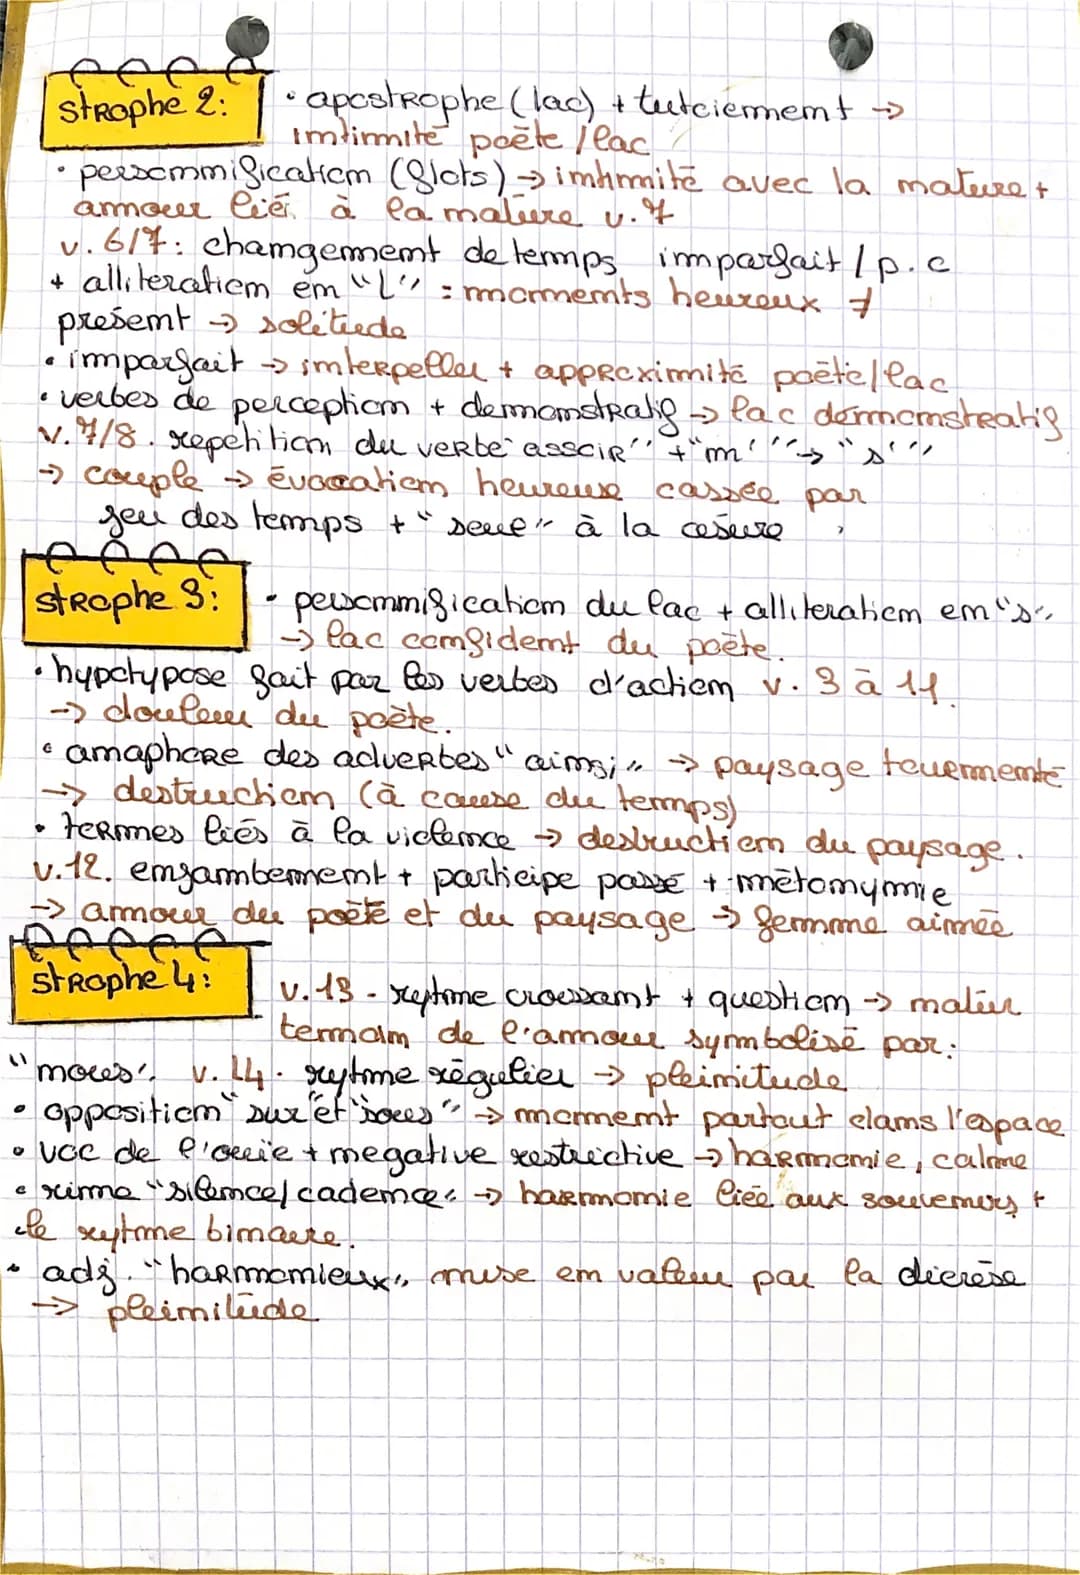 strophe 2: • apostrophe (lac) + tutoiement →
intimité poète / lac
• personnification (flots) → intimité avec la nature +
amour liée à la nature v. 7
v. 6/7: changement de temps imparfait / p.c
+ alliteration en "L" = moments heureux ≠
présent → solitude
• imparfait → interpeller + approximité poète/lac
• verbes de perception + demonstratif → lac démonstratif
v. 7/8. repetition du verbe "assoir" + "m'" → "s'"
→ couple → évocation heureuse cassée par
jeu des temps + "seul" à la césure
strophe 3: • personnification du lac + alliteration en "s"
→ lac confident du poète.
• hypotypose fait par les verbes d'action v. 9 à 11.
→ douleur du poète.
• anaphore des adverbes "ainsi" → paysage tourmenté
→ destruction (à cause du temps)
• termes liés à la violence → destruction du paysage.
v. 12. enjambement + participe passé + métonymie
→ amour du poète et du paysage → femme aimée
strophe 4: v. 13 - rytme croissant + question →
de l'amour symbolisé par:
"nous". v. 14. rytme régulier → plénitude
• opposition "sur" et "sous" → moment partout dans l'espace
• voc de l'ouïe + negative restrictive → harmonie, calme
• rime "silence/cadence" → harmonie liée aux souvenirs +
le rytme binaire.
• adj. "harmonieux" mise en valeur par la dierèse
→ plénitude